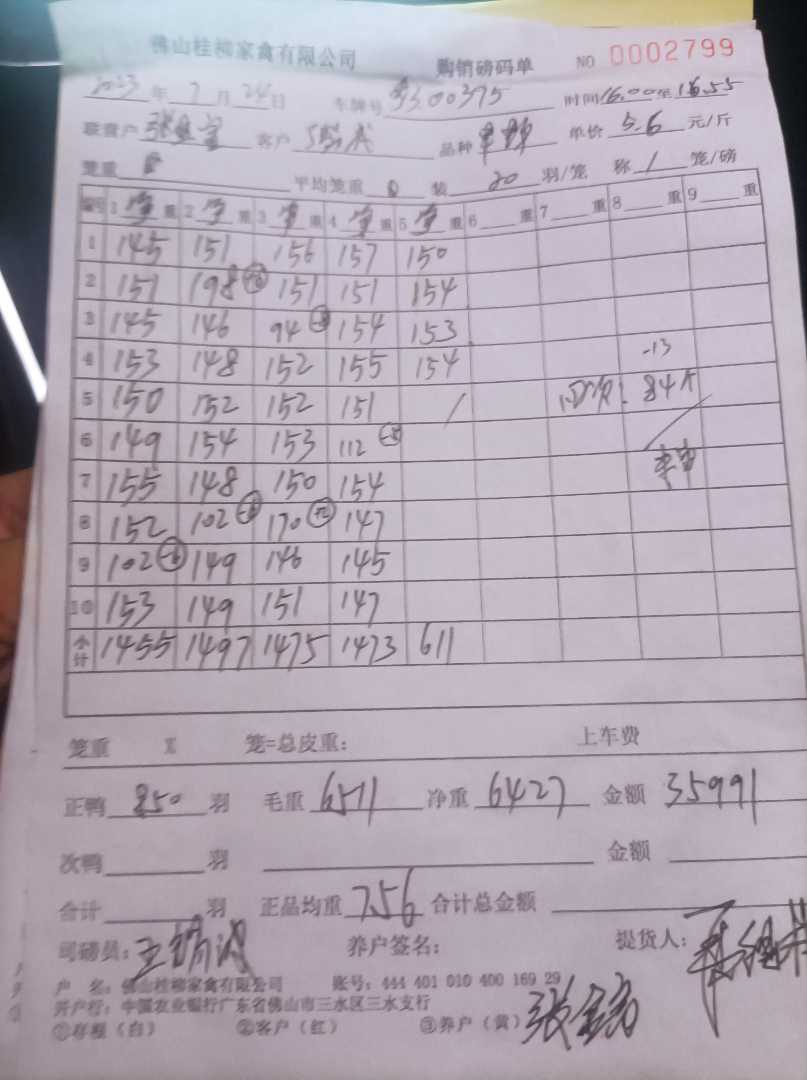 佛山桂柳家禽有限公司 购销磅码单 NO 0002799
2023年7月24日 车牌号 时间16:00至16:55
联营户 客户 品种 单价5.6元/斤
笼重 平均笼重0 装20羽/笼 称1笼/磅
编号 1 重 2 重 3 重 4 重 5 重 6 重 7 重 8 重 9 重
1 145 151 156 157 150
2 151 198 151 151 154
3 145 146 94 154 153
4 153 148 152 155 154 -13
5 150 152 152 151 / 84
6 149 154 153 112
7 155 148 150 154
8 152 102 170 147
9 102 149 146 145
10 153 149 151 147
小计 1455 1497 1475 1473 611
笼重 X 笼=总皮重: 上车费
正鸭850羽 毛重6511 净重6427 金额35991
次鸭 羽 金额
合计 羽 正品均重7.56 合计总金额
司磅员: 养户签名: 提货人:
户 名: 佛山桂柳家禽有限公司 账号: 444 401 010 400 169 29
开户行: 中国农业银行广东省佛山市三水区三水支行
①存根(白) ②客户(红) ③养户(黄)